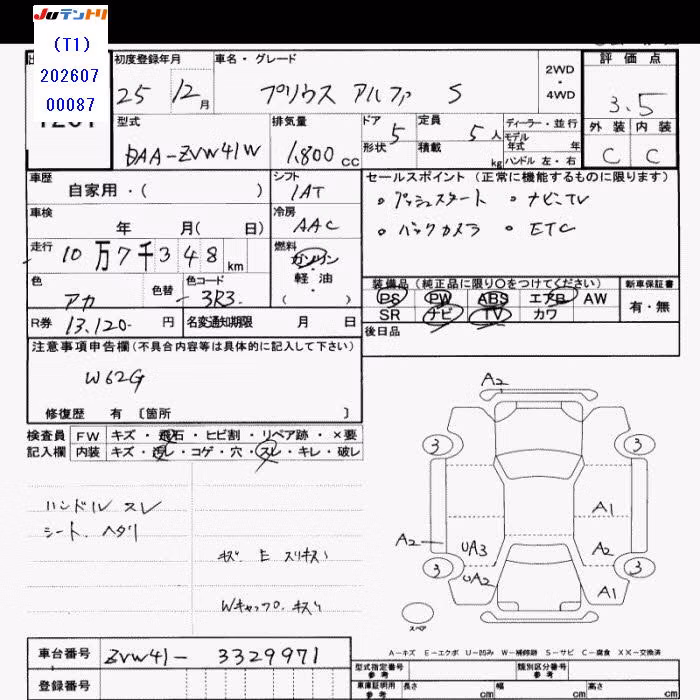 Juテントリ
(T1)
202607
00087
初度登録年月
25年 12月
車名・グレード
プリウス アルファ S
2WD
・
4WD
評価点
3.5
外装 内装
C C
型式
DAA-ZVW41W
排気量
1,800 cc
ドア 5
形状
定員 5 人
積載 kg
ディーラー・並行
モデル
年式 年
ハンドル 左・右
車歴
自家用・( )
シフト
IAT
車検
年 月( 日)
冷房
AAC
走行
10万7千348 km
燃料
ガソリン
・
軽油
( )
色
アカ
色替
色コード
3R3
R券
13,120- 円
名変通知期限 月 日
セールスポイント (正常に機能するものに限ります)
・プッシュスタート ・ナビ・TV
・バックカメラ ・ETC
装備品(純正品に限り〇をつけてください)
PS PW ABS エアB AW
SR ナビ TV カワ
新車保証書
有・無
後日品
注意事項申告欄(不具合内容等は具体的に記入して下さい)
W62G
修復歴 有 〔箇所 〕
検査員
記入欄
FW キズ・飛石・ヒビ割・リペア跡・×要
内装 キズ・汚レ・コゲ・穴・スレ・キレ・破レ
ハンドル スレ
シート、ヘタリ
キズ E スリキズ
Wキャップ キズ
A2
3 3
A1
A2 UA3 A2
3 3
UA2 A1
スペア
A-キズ E-エクボ U-凹み W-補修跡 S-サビ C-腐食 XX-交換済
車台番号 ZVW41-3329971
登録番号
型式指定番号
参考
類別区分番号
参考
車庫証明用
参考
長さ cm 幅 cm 高さ cm